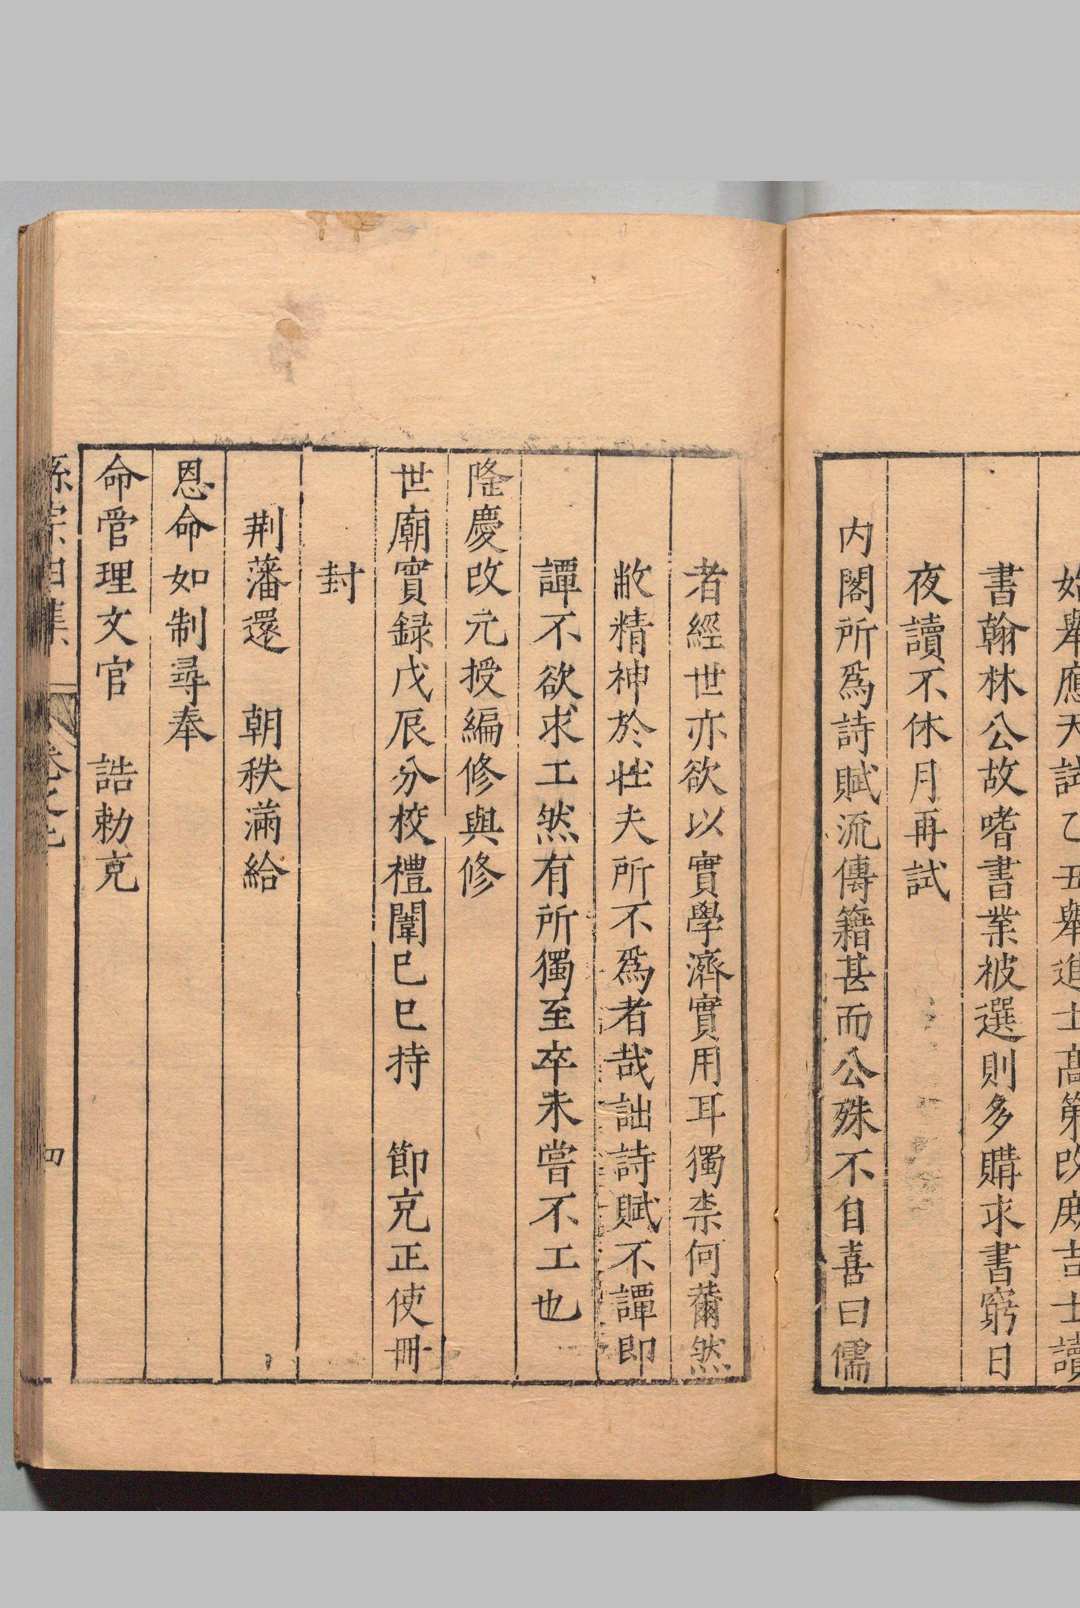 始舉應天試乙丑舉進士高第改庶吉士讀
書翰林公故嗜書業被選則多購求書窮日
夜讀不休月再試
内閣所爲詩賦流傳籍甚而公殊不自喜曰儒
者經世亦欲以實學濟實用耳獨柰何薾然
敝精神於壯夫所不爲者哉詘詩賦不譚即
譚不欲求工然有所獨至卒未嘗不工也
隆慶改元授編修與修
世廟實録戊辰分校禮闈巳巳持　節克正使冊
封
荆藩還　朝秩滿給
恩命如制尋奉
命管理文官　誥勅克
孫宗伯集　卷之　四